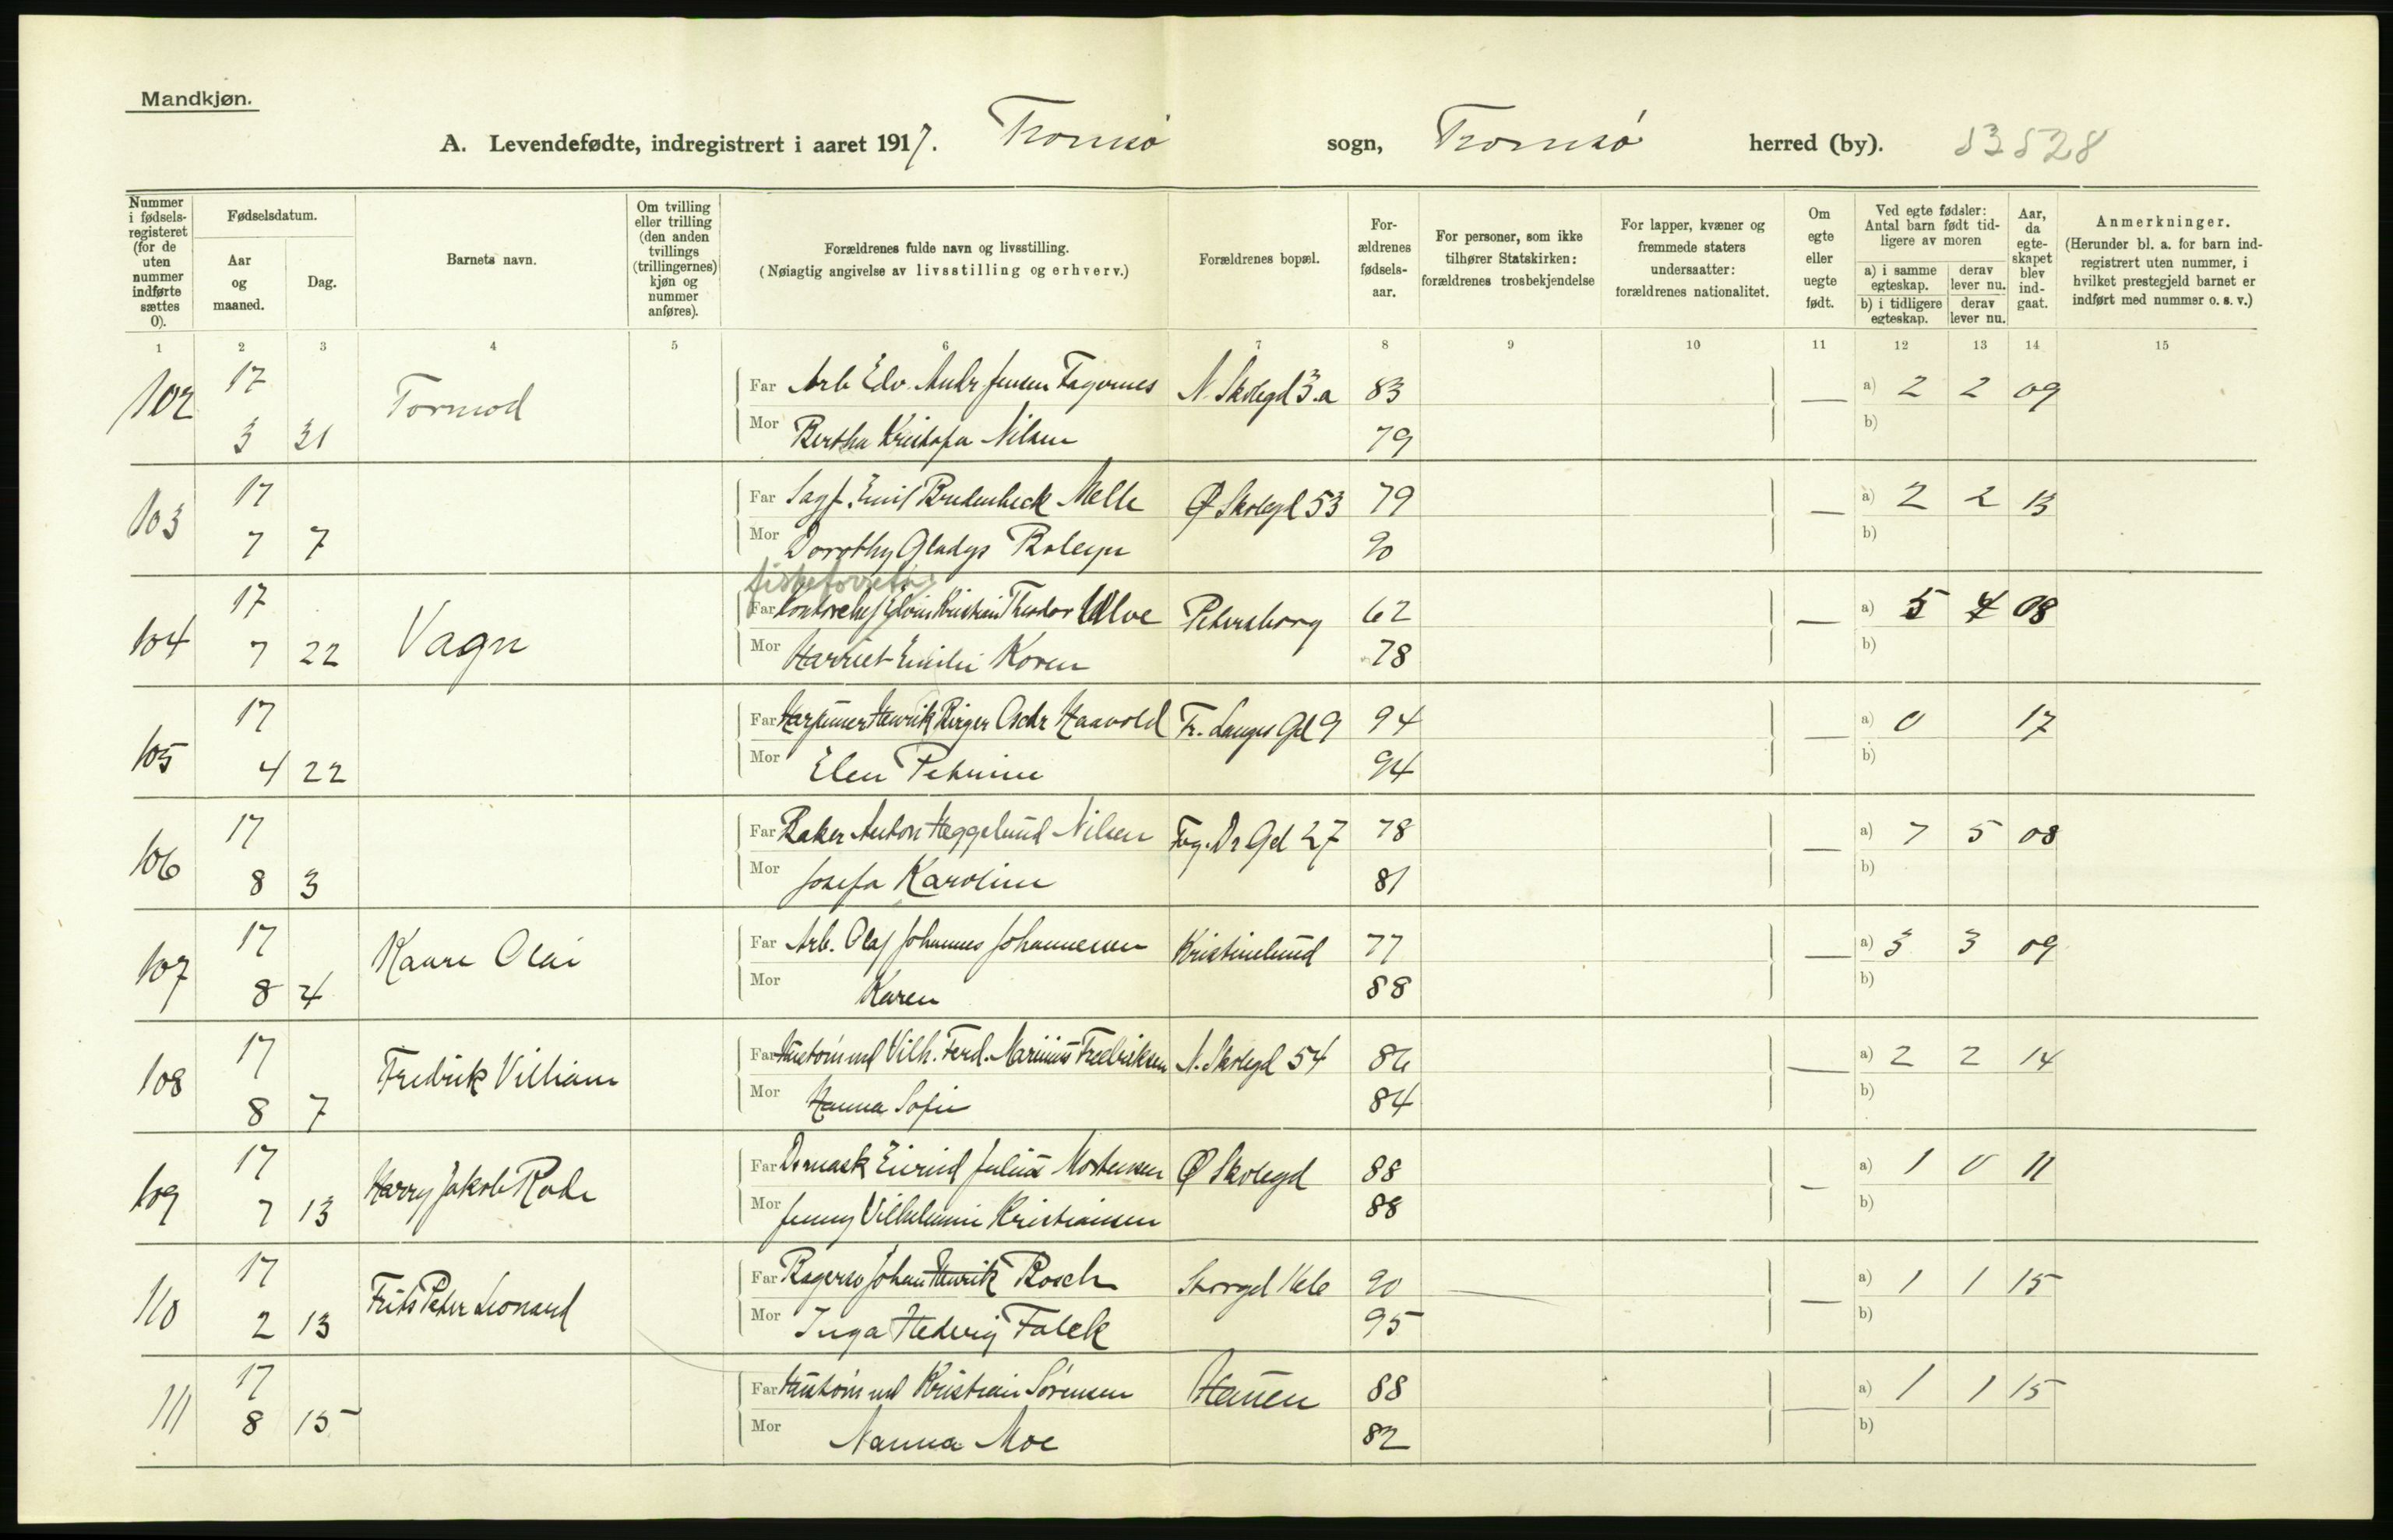 Mandkjøn.
A. Levendefødte, indregistrert i aaret 1917. Tromsø sogn, Tromsø herred (by). 53528
Nummer i fødsels-registeret (for de uten nummer indførte sættes 0).
Fødselsdatum.
Aar og maaned.
Dag.
Barnets navn.
Om tvilling eller trilling (den anden tvillings (trillingernes) kjøn og nummer anføres).
Forældrenes fulde navn og livsstilling.
(Nøiagtig angivelse av livsstilling og erhverv.)
Forældrenes bopæl.
For-ældrenes fødsels-aar.
For personer, som ikke tilhører Statskirken: forældrenes trosbekjendelse
For lapper, kvæner og fremmede staters undersaatter: forældrenes nationalitet.
Om egte eller uegte født.
Ved egte fødsler: Antal barn født tid-ligere av moren
a) i samme egteskap.
derav lever nu.
b) i tidligere egteskap.
derav lever nu.
Aar, da egte-skapet blev ind-gaat.
Anmerkninger.
(Herunder bl. a. for barn ind-registrert uten nummer, i hvilket prestegjeld barnet er indført med nummer o. s. v.)
1 2 3 4 5 6 7 8 9 10 11 12 13 14 15
102 17 Tormod Far Arb Edv. Andr Jensen Fagernes N. Skolegd 3.a 83 — a) 2 2 09
3 31 Mor Bertha Kristofa Nilsen 79 b)
103 17 Far Sagf. Emil Bredenbeck Melle Ø Skolegd 53 79 — a) 2 2 13
7 7 Mor Dorothy Gladys 90 b)
104 17 Vagn Far Kontorchef Kristian Theodor Ulve Petersborg 62 — a) 5 4 08
7 22 Mor Harriet Emilie Koren 78 b)
105 17 Far Harpuner Henrik Birger Oschr Haavold Fr. Langes Gd 9 94 — a) 0 17
4 22 Mor Elen Petrine 94 b)
106 17 Far Baker Anton Heggelund Nilsen Fog. Dr Gd 27 78 — a) 7 5 08
8 3 Mor Josefa Karoline 81 b)
107 17 Kaare Olai Far Arb. Olaf Johannes Johannesen Kristinelund 77 — a) 3 3 09
8 4 Mor Karen 88 b)
108 17 Fredrik Villiam Far Vilh. Ferd. Marinius Fredriksen N. Skolegd 54 86 — a) 2 2 14
8 7 Mor Hanna Sofie 84 b)
109 17 Harry Jakob Rode Far Eivind Julius Mortensen Ø Skolegd 88 — a) 1 0 11
7 13 Mor Jenny Vilhelmine Kristiansen 88 b)
110 17 Frits Peter Leonard Far Johan Henrik Bosch Storgd 90 — a) 1 1 15
2 13 Mor Inga Hedvig Falck 95 b)
111 17 Far Kristian Sørensen 88 — a) 1 1 15
8 15 Mor Nanna Moe 82 b)